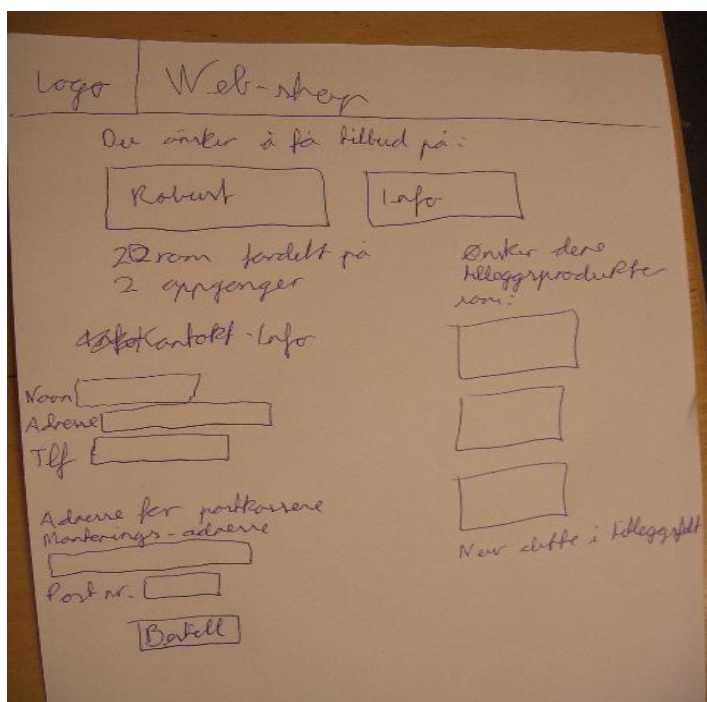 Logo Web-shop
Du ønsker å få tilbud på:
Robust Info
20 rom fordelt på
2 oppganger
Kontakt-Info
Navn
Adresse
Tlf
Adresse for postkassene
Monterings-adresse
Post nr.
Bestill
Ønsker dere
tilleggsprodukter
som:
Nev dette i tilleggsfelt